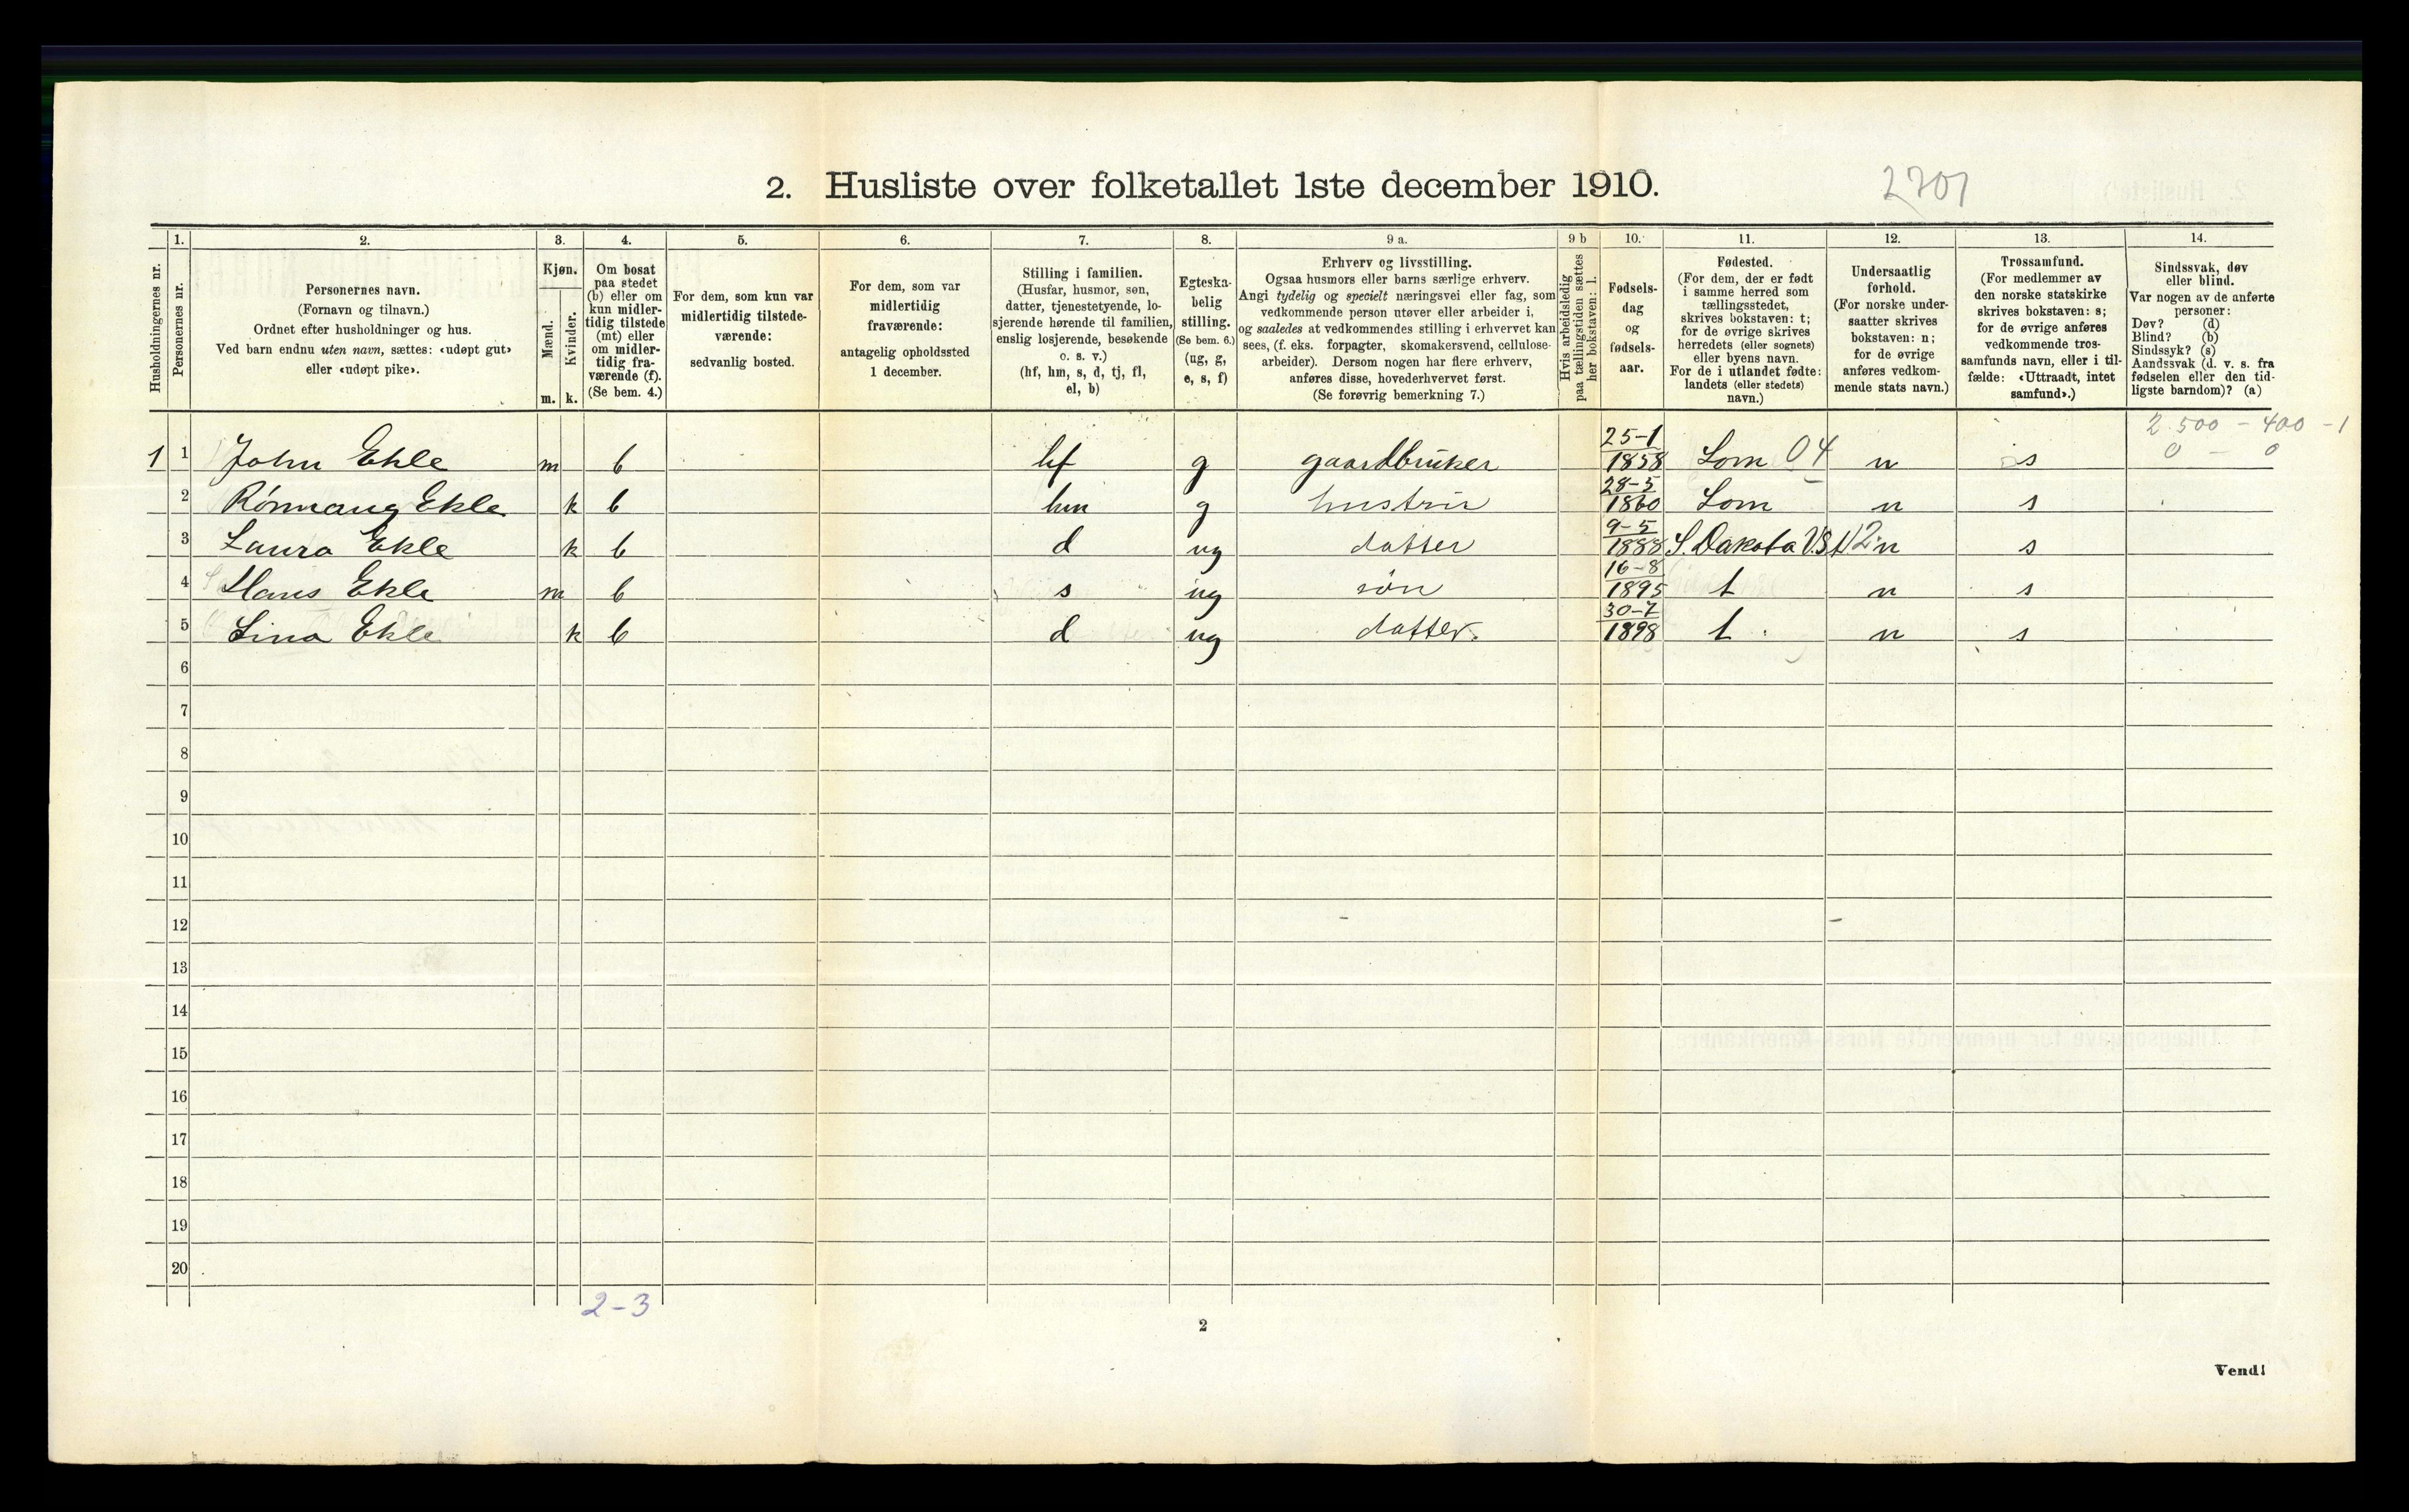 2. Husliste over folketallet 1ste december 1910.
2701
Husholdningernes nr.
1.
Personernes nr.
2.
Personernes navn.
(Fornavn og tilnavn.)
Ordnet efter husholdninger og hus.
Ved barn endnu uten navn, sættes: «udøpt gut»
eller «udøpt pike».
3.
Kjøn.
Mænd.
Kvinder.
m. k.
4.
Om bosat
paa stedet
(b) eller om
kun midler-
tidig tilstede
(mt) eller
om midler-
tidig fra-
værende (f).
(Se bem. 4.)
5.
For dem, som kun var
midlertidig tilstede-
værende:
sedvanlig bosted.
6.
For dem, som var
midlertidig
fraværende:
antagelig opholdssted
1 december.
7.
Stilling i familien.
(Husfar, husmor, søn,
datter, tjenestetyende, lo-
sjerende hørende til familien,
enslig losjerende, besøkende
o. s. v.)
(hf, hm, s, d, tj, fl,
el, b)
8.
Egteska-
belig
stilling.
(Se bem. 6.)
(ug, g,
e, s, f)
9 a.
Erhverv og livsstilling.
Ogsaa husmors eller barns særlige erhverv.
Angi tydelig og specielt næringsvei eller fag, som
vedkommende person utøver eller arbeider i,
og saaledes at vedkommendes stilling i erhvervet kan
sees, (f. eks. forpagter, skomakersvend, cellulose-
arbeider). Dersom nogen har flere erhverv,
anføres disse, hovederhvervet først.
(Se forøvrig bemerkning 7.)
9 b
Hvis arbeidsledig
paa tællingstiden sættes
her bokstaven: l.
10.
Fødsels-
dag
og
fødsels-
aar.
11.
Fødested.
(For dem, der er født
i samme herred som
tællingsstedet,
skrives bokstaven: t;
for de øvrige skrives
herredets (eller sognets)
eller byens navn.
For de i utlandet fødte:
landets (eller stedets)
navn.)
12.
Undersaatlig
forhold.
(For norske under-
saatter skrives
bokstaven: n;
for de øvrige
anføres vedkom-
mende stats navn.)
13.
Trossamfund.
(For medlemmer av
den norske statskirke
skrives bokstaven: s;
for de øvrige anføres
vedkommende tros-
samfunds navn, eller i til-
fælde: «Uttraadt, intet
samfund».)
14.
Sindssvak, døv
eller blind.
Var nogen av de anførte
personer:
Døv? (d)
Blind? (b)
Sindssyk? (s)
Aandssvak (d. v. s. fra
fødselen eller den tid-
ligste barndom)? (a)
2 500 - 400 - 1
0 - 0
1 1 John Ekle m b hf g gaardbruker 25-1 1858 Lom 04 n s
2 Rønnaug Ekle k b hm g hustru 28-5 1860 Lom n s
3 Laura Ekle k b d ug datter 9-5 1888 S. Dakota U.S. 12 n s
4 Hans Ekle m b s ug søn 16-8 1895 t n s
5 Lina Ekle k b d ug datter. 30-7 1898 t n s
6
7
8
9
10
11
12
13
14
15
16
17
18
19
20
2-3
2
Vend!